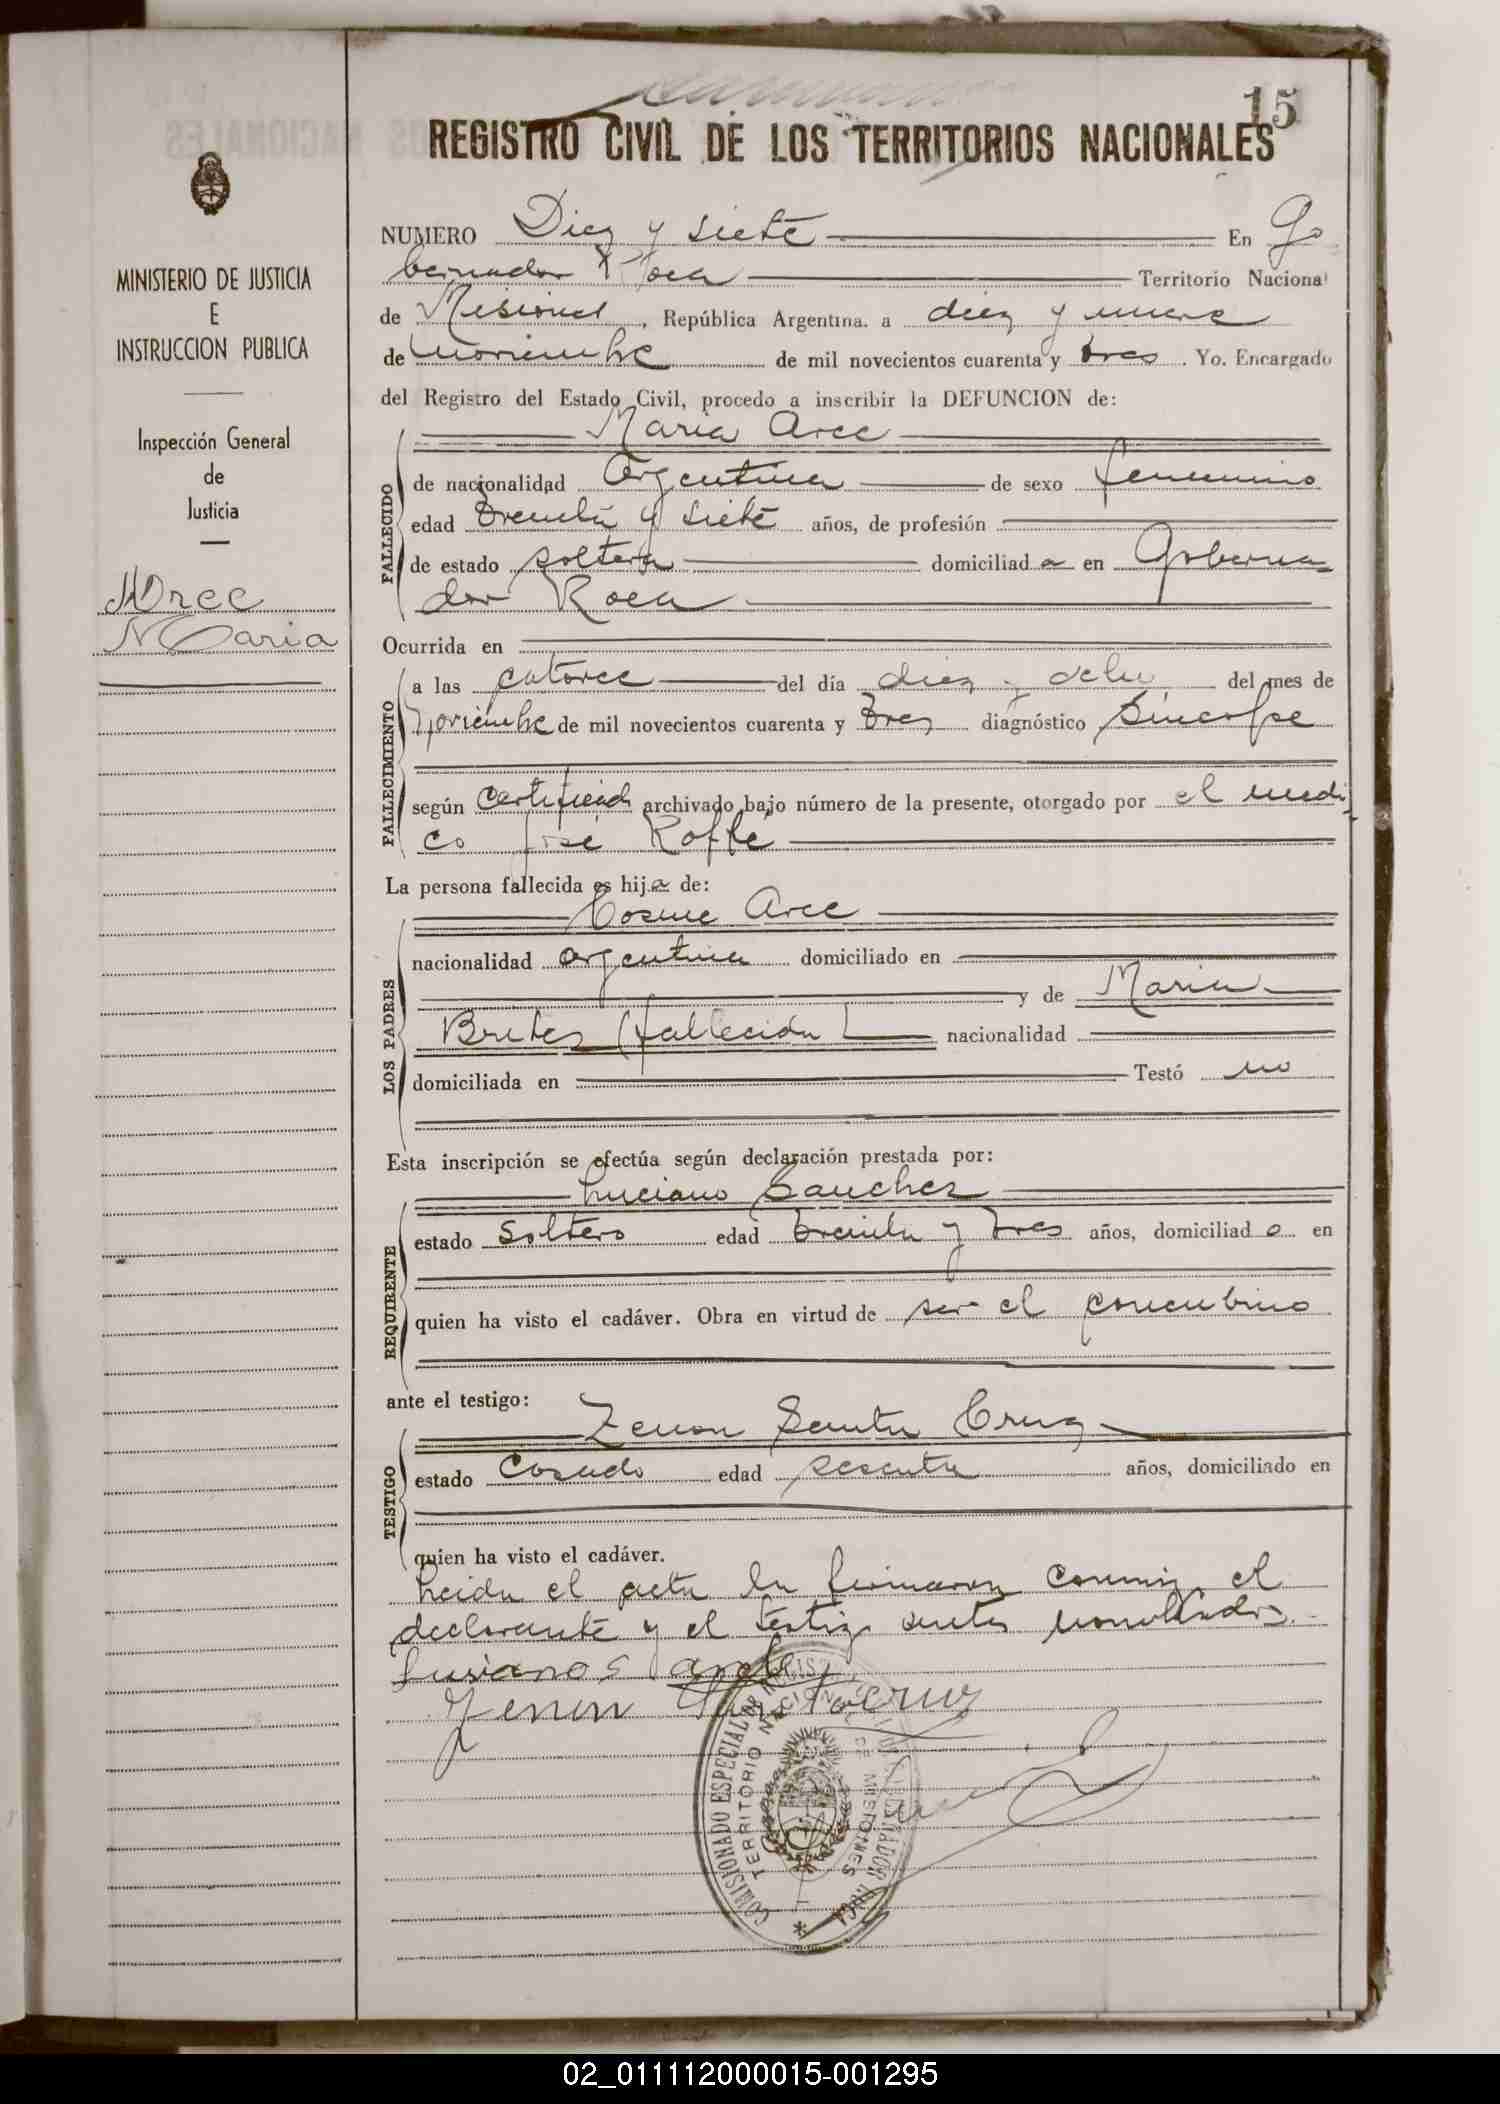 15
REGISTRO CIVIL DE LOS TERRITORIOS NACIONALES
MINISTERIO DE JUSTICIA
E
INSTRUCCION PUBLICA
Inspección General
de
Justicia
Arce
Maria
NUMERO Diez y siete En Go
bernador Roca Territorio Nacional
de Misiones, República Argentina. a diez y nueve
de noviembre de mil novecientos cuarenta y tres. Yo. Encargado
del Registro del Estado Civil, procedo a inscribir la DEFUNCION de:
Maria Arce
FALLECIDO
de nacionalidad Argentina de sexo femenino
edad treinta y siete años, de profesión
de estado soltera domiciliada en Goberna=
dor Roca
Ocurrida en
FALLECIMIENTO
a las catorce del día diez y ocho del mes de
Noviembre de mil novecientos cuarenta y tres diagnóstico Sincope
según certificado archivado bajo número de la presente, otorgado por el medi-
co José Roffe
La persona fallecida es hija de:
LOS PADRES
Cosme Arce
nacionalidad argentina domiciliado en
y de Maria
Britez (fallecida) nacionalidad
domiciliada en Testó no
Esta inscripción se efectúa según declaración prestada por:
REQUIRENTE
Luciano Sanchez
estado soltero edad treinta y tres años, domiciliado en
quien ha visto el cadáver. Obra en virtud de ser el concubino
ante el testigo:
TESTIGO
Zenon Santa Cruz
estado Casado edad sesenta años, domiciliado en
quien ha visto el cadáver.
Leida el acta la firmaron conmigo el
declarante y el testigo antes nombrados.
Lusiano S
Zenon Santa cruz
COMISIONADO ESPECIAL
TERRITORIO NACIONAL DE MISIONES
02_011112000015-001295